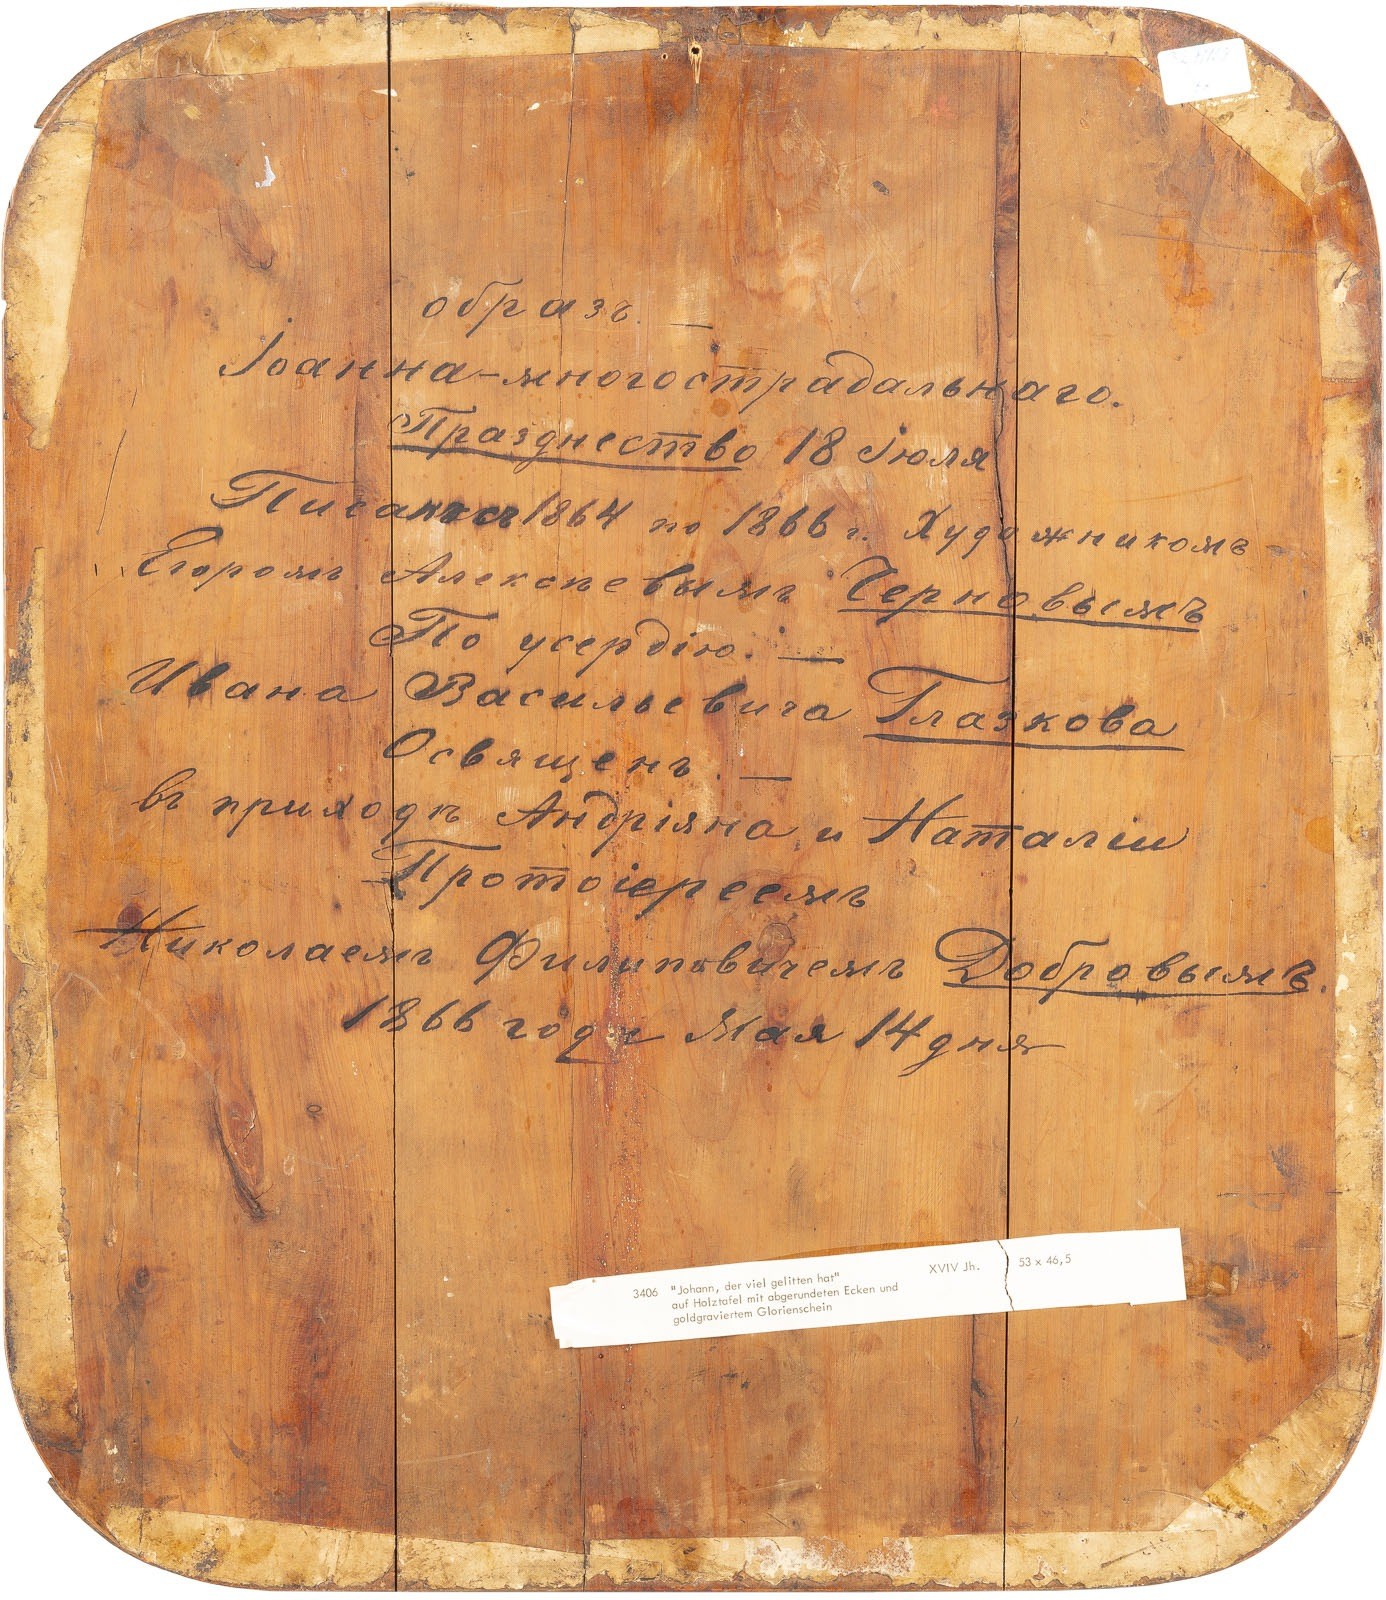 образъ. —
Іоанна-многострадальнаго.
Празднество 18 Іюля
Писанъ съ 1864 по 1866 г. Художникомъ
Егоромъ Алексѣевымъ Черновымъ
По усердію. —
Ивана Васильевича Глазкова
Освященъ. —
въ приходѣ Андріяна и Наталіи
Протоіереемъ
Николаемъ Филиповичемъ Добровымъ.
1866 годъ Мая 14 дня
3406 "Johann, der viel gelitten hat" XVIV Jh. 53 x 46,5
auf Holztafel mit abgerundeten Ecken und
goldgraviertem Glorienschein